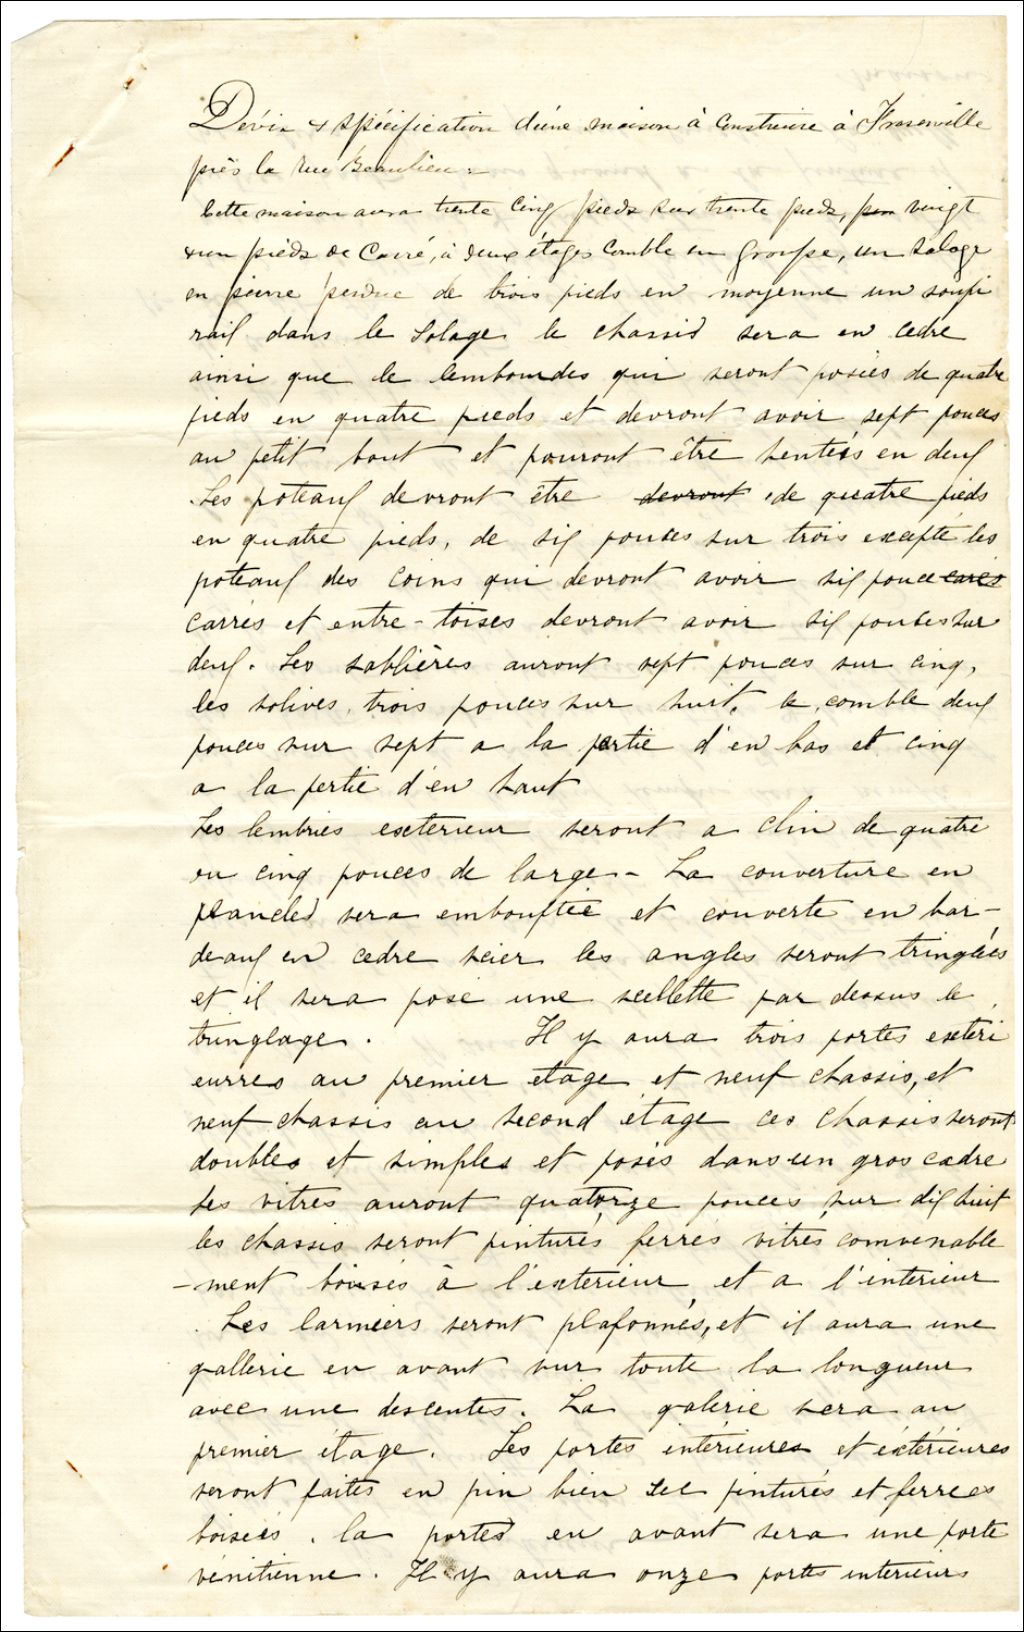 Dévis & spécification d'une maison à construire à Fraserville
près la rue Beaulieu.
Cette maison aura trente cinq pieds sur trente pieds, par vingt
& un pieds de carré, à deux étages comble en , un solage
en pierre perdue de trois pieds en moyenne un soupi
rail dans le solage le chassis sera en cedre
ainsi que le lembourdes qui seront posées de quatre
pieds en quatre pieds et devront avoir sept pouces
au petit bout et pouront être hentées en deux
Les poteaux devront être devront de quatre pieds
en quatre pieds, de six pouces sur trois excepté les
poteaux des coins qui devront avoir six pouce carés
carrés et entre-toises devront avoir six pouces sur
deux. Les sablières auront sept pouces sur cinq,
les solives trois pouces sur huit, le comble deux
pouces sur sept a la partie d'en bas et cinq
a la pertie d'en haut
Les lembries exterieur seront a clin de quatre
ou cinq pouces de large - La couverture en
planches sera embouftée et couverte en bar-
deaux en cedre scier les angles seront tringlées
et il sera posé une sellette par dessus le
tringlage. Il y aura trois portes exteri
eurres au premier etage et neuf chassis, et
neuf chassis au second étage ces chassis seront
doubles et simples et posés dans un gros cadre
les vitres auront quatorze pouces sur dix huit
les chassis seront pinturés ferrés vitrés convenable
-ment boisés à l'exterieur et a l'interieur
Les larmiers seront plafonnés, et il aura une
gallerie en avant sur toute la longueur
avec une descentes. La galerie sera au
premier étage. Les portes intérieures et extérieures
seront faites en pin bien sec pinturés et ferrees
boisées. la portes en avant sera une porte
vénitienne. Il y aura onze portes interieurs